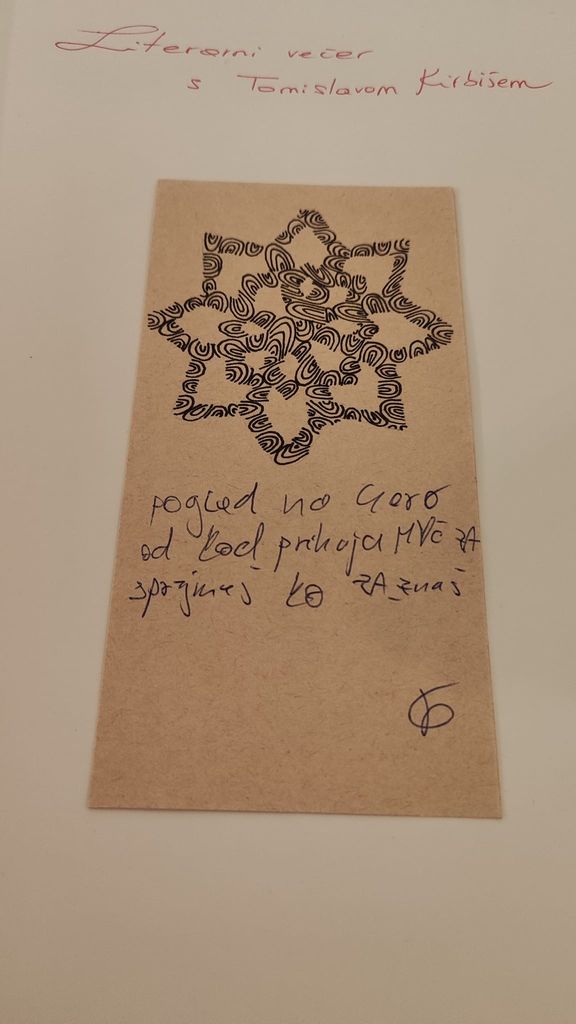 Literarni večer
s Tomislavom Kirbišem
pogled na Goro
od kod prihaja ZA
ko ZA znaš